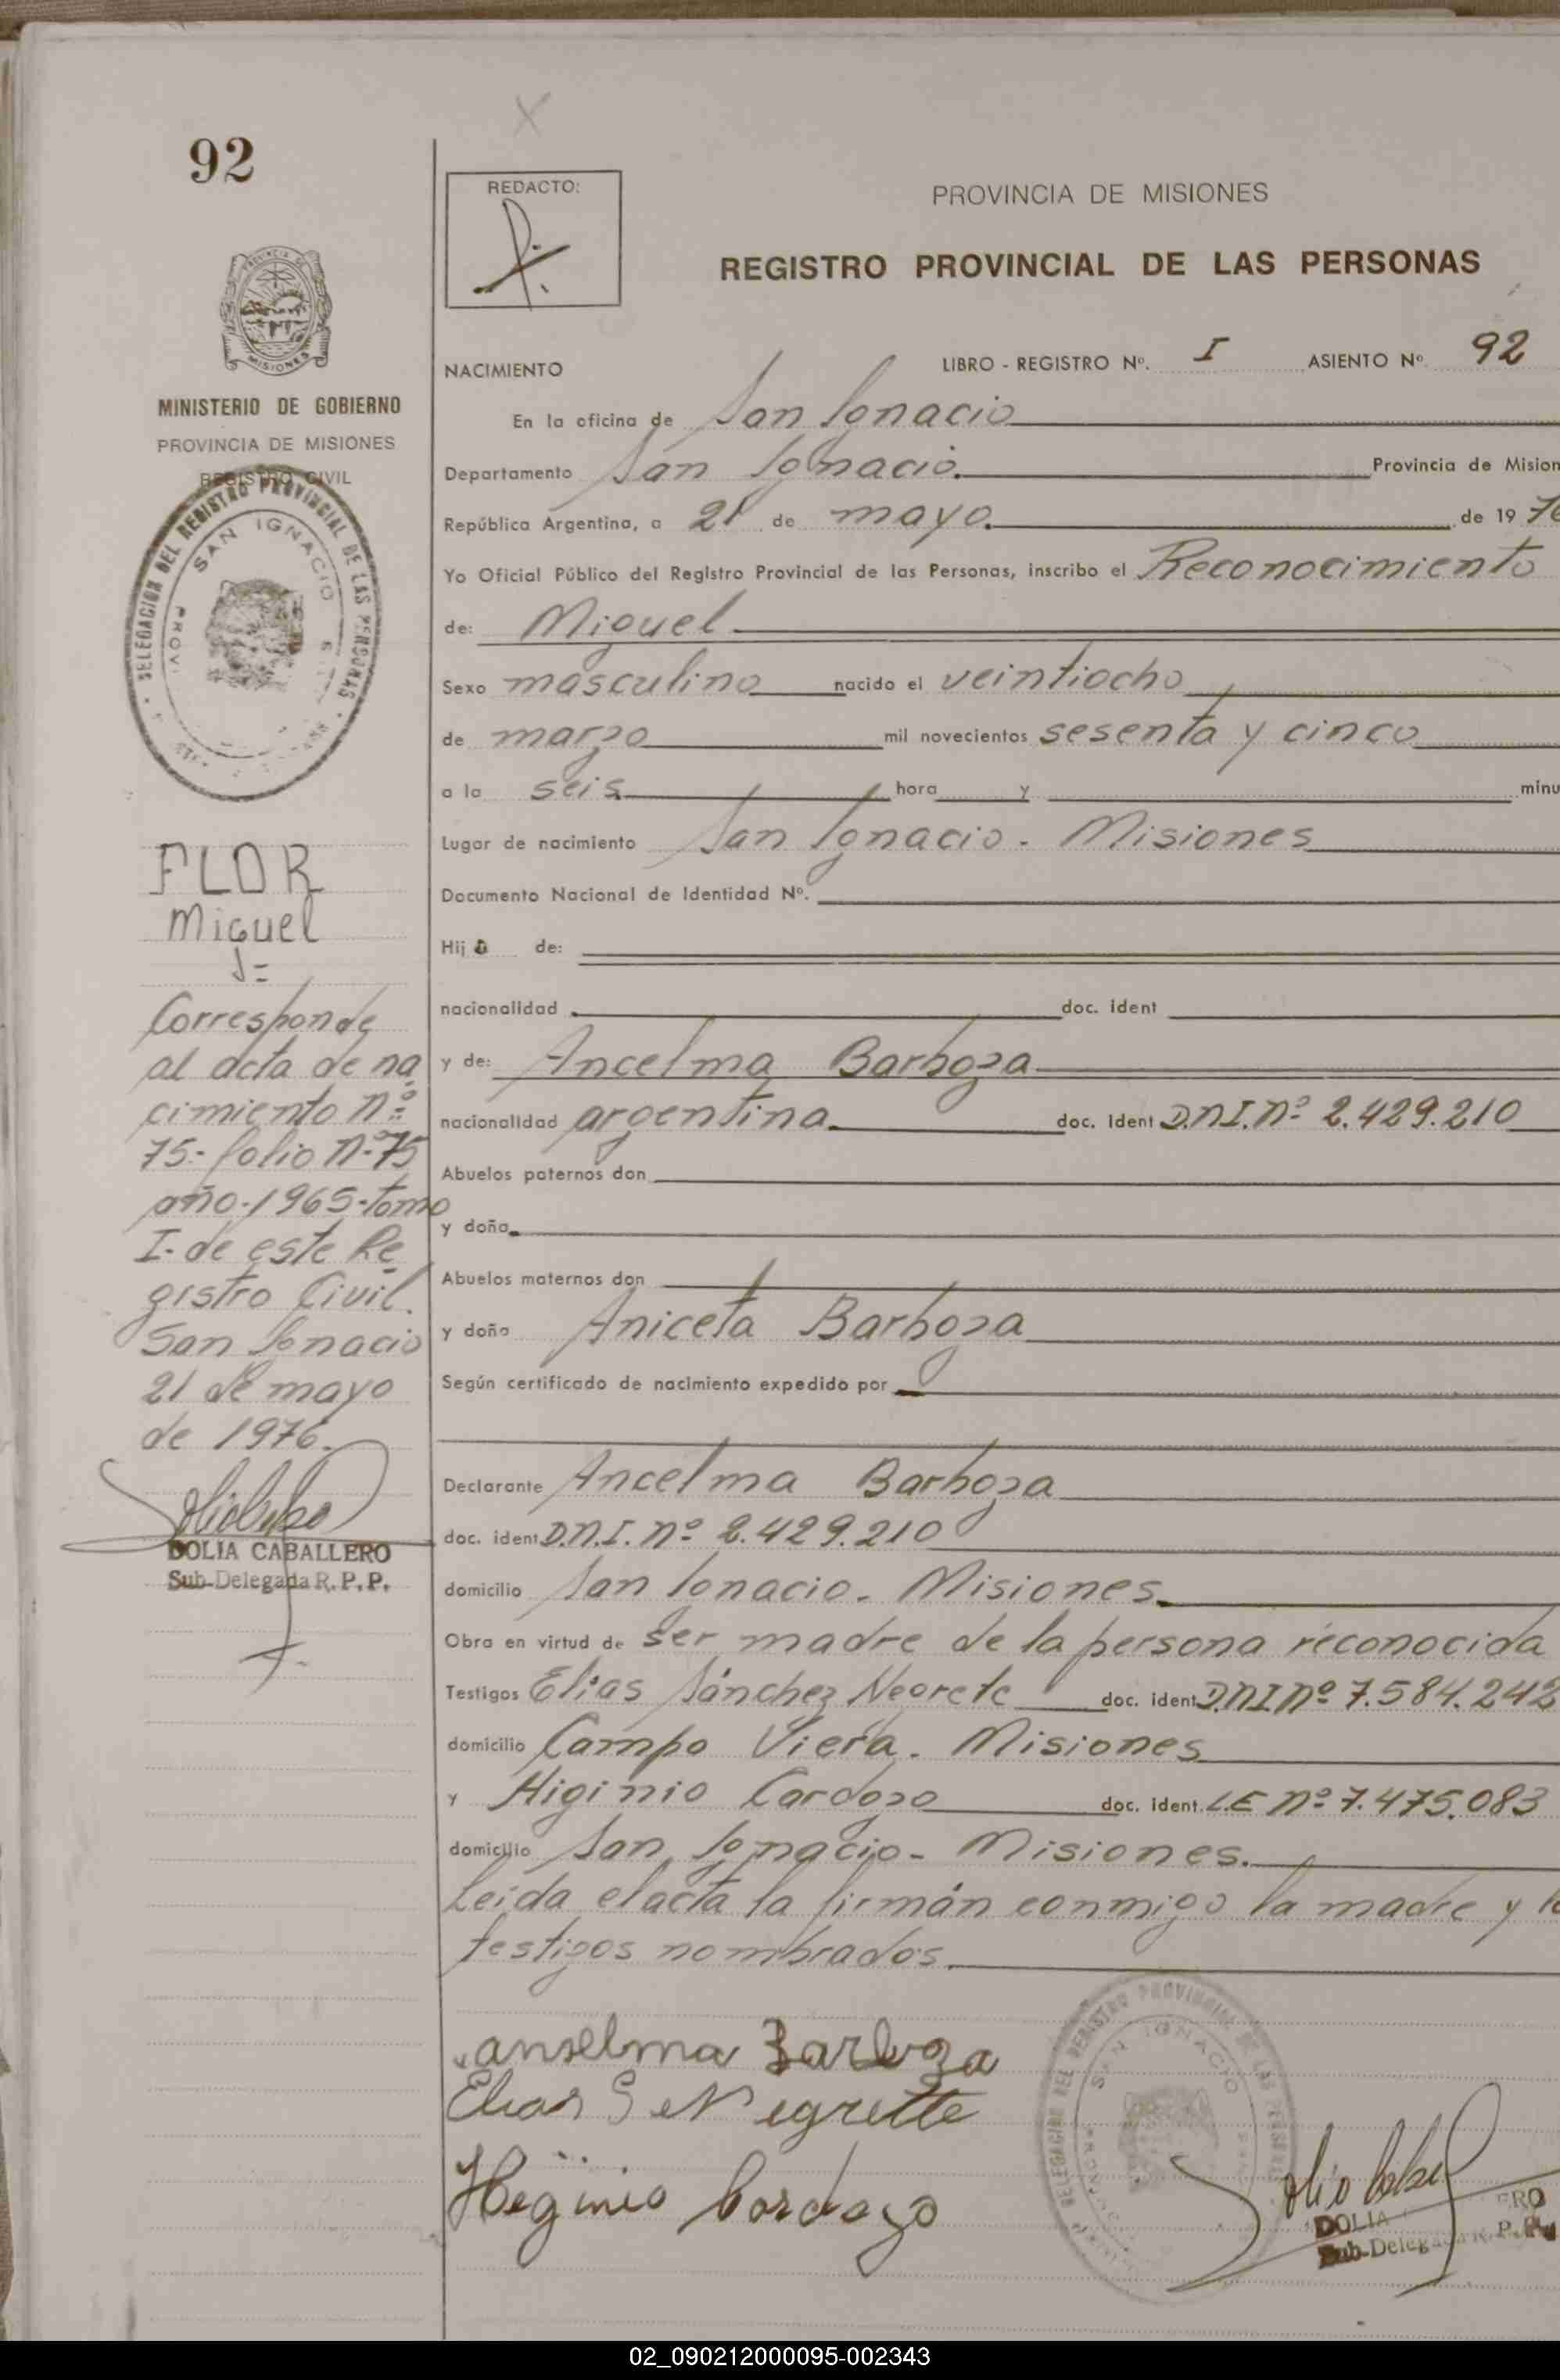 92
REDACTO:
PROVINCIA DE MISIONES
REGISTRO PROVINCIAL DE LAS PERSONAS
MINISTERIO DE GOBIERNO
PROVINCIA DE MISIONES
REGISTRO CIVIL
DELEGACION DEL REGISTRO PROVINCIAL DE LAS PERSONAS
SAN IGNACIO
FLOR
Miguel
Corresponde
al acta de na
cimiento nº
75- folio Nº 75
año-1965-tomo
I- de este Re
gistro Civil.
San Ignacio
21 de mayo
de 1976.
DOLIA CABALLERO
Sub-Delegada R. P. P.
NACIMIENTO LIBRO - REGISTRO Nº. I ASIENTO Nº 92
En la oficina de San Ignacio
Departamento San Ignacio. Provincia de Mision
República Argentina, a 21 de mayo. de 19 76
Yo Oficial Público del Registro Provincial de las Personas, inscribo el Reconocimiento
de: Miguel
Sexo masculino nacido el veintiocho
de marzo mil novecientos sesenta y cinco
a la seis hora y minu
Lugar de nacimiento San Ignacio - Misiones
Documento Nacional de Identidad Nº.
Hijo de:
nacionalidad doc. ident
y de: Ancelma Barboza
nacionalidad argentina. doc. Ident D.N.I. Nº 2.429.210
Abuelos paternos don
y doña
Abuelos maternos don
y doña Aniceta Barboza
Según certificado de nacimiento expedido por
Declarante Ancelma Barboza
doc. ident D.N.I. nº 2.429.210
domicilio San Ignacio. Misiones.
Obra en virtud de ser madre de la persona reconocida
Testigos Elias Sánchez Negrete doc. ident D.N.I Nº 7.584.242
domicilio Campo Viera. Misiones
y Higinio Cardozo doc. ident. L.E nº 7.475.083
domicilio San Ignacio- Misiones.
Leída el acta la firmán conmigo la madre y lo
testigos nombrados.
anselma Barboza
Elias S e Negrette
Higinio Cardozo
DELEGACION DEL REGISTRO PROVINCIAL DE LAS PERSONAS
SAN IGNACIO
DOLIA
Sub-Delegada R. P. P.
02_090212000095-002343